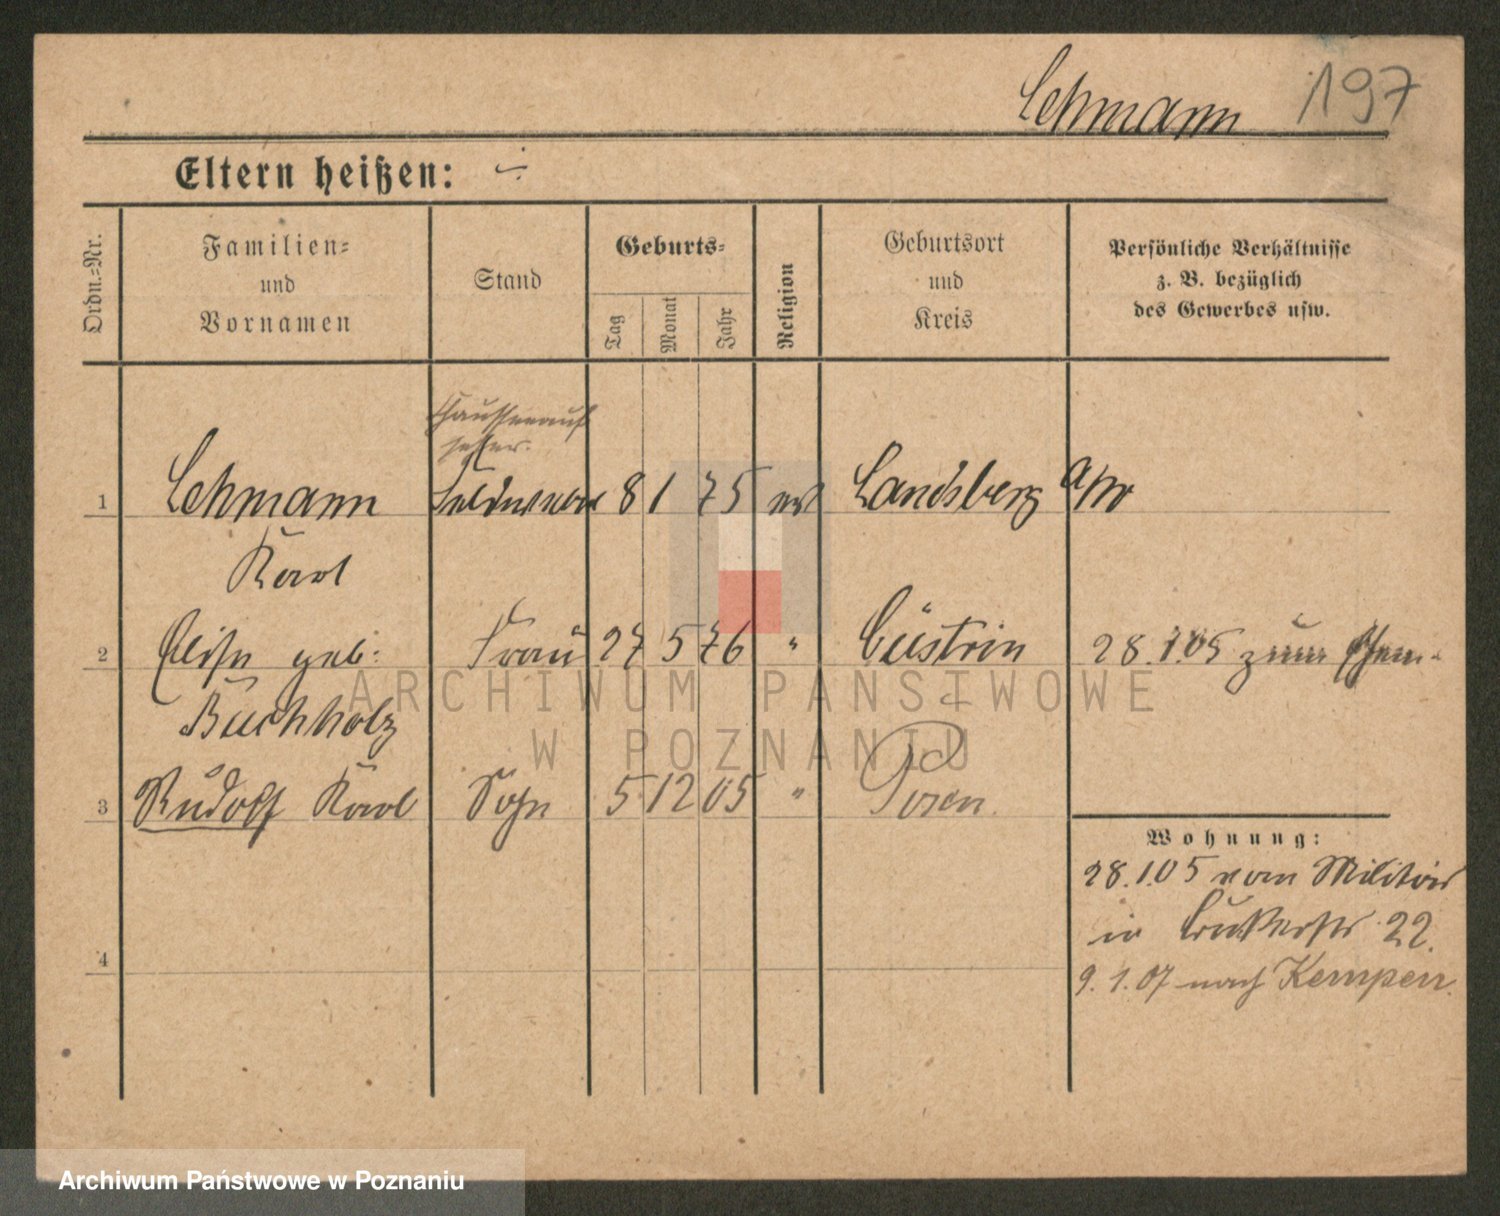 Lehmann 197
Eltern heißen: ÷
Ordn.-Nr.
Familien-
und
Vornamen
Stand
Geburts-
Tag
Monat
Jahr
Religion
Geburtsort
und
Kreis
Persönliche Verhältnisse
z. B. bezüglich
des Gewerbes usw.
Chausseeauf
seher.
1 Lehmann 8 1 75 ev Landsberg a/W
Karl
2 Elise geb: Frau 27 5 76 " Cüstrin 28.1.05 zum
Buchholz
3 Rudolf Karl Sohn 5 12 05 " Posen
Wohnung:
28.1.05 vom Militär
in 22.
4
9.1.07 nach Kempen.
ARCHIWUM PAŃSTWOWE
W POZNANIU
Archiwum Państwowe w Poznaniu